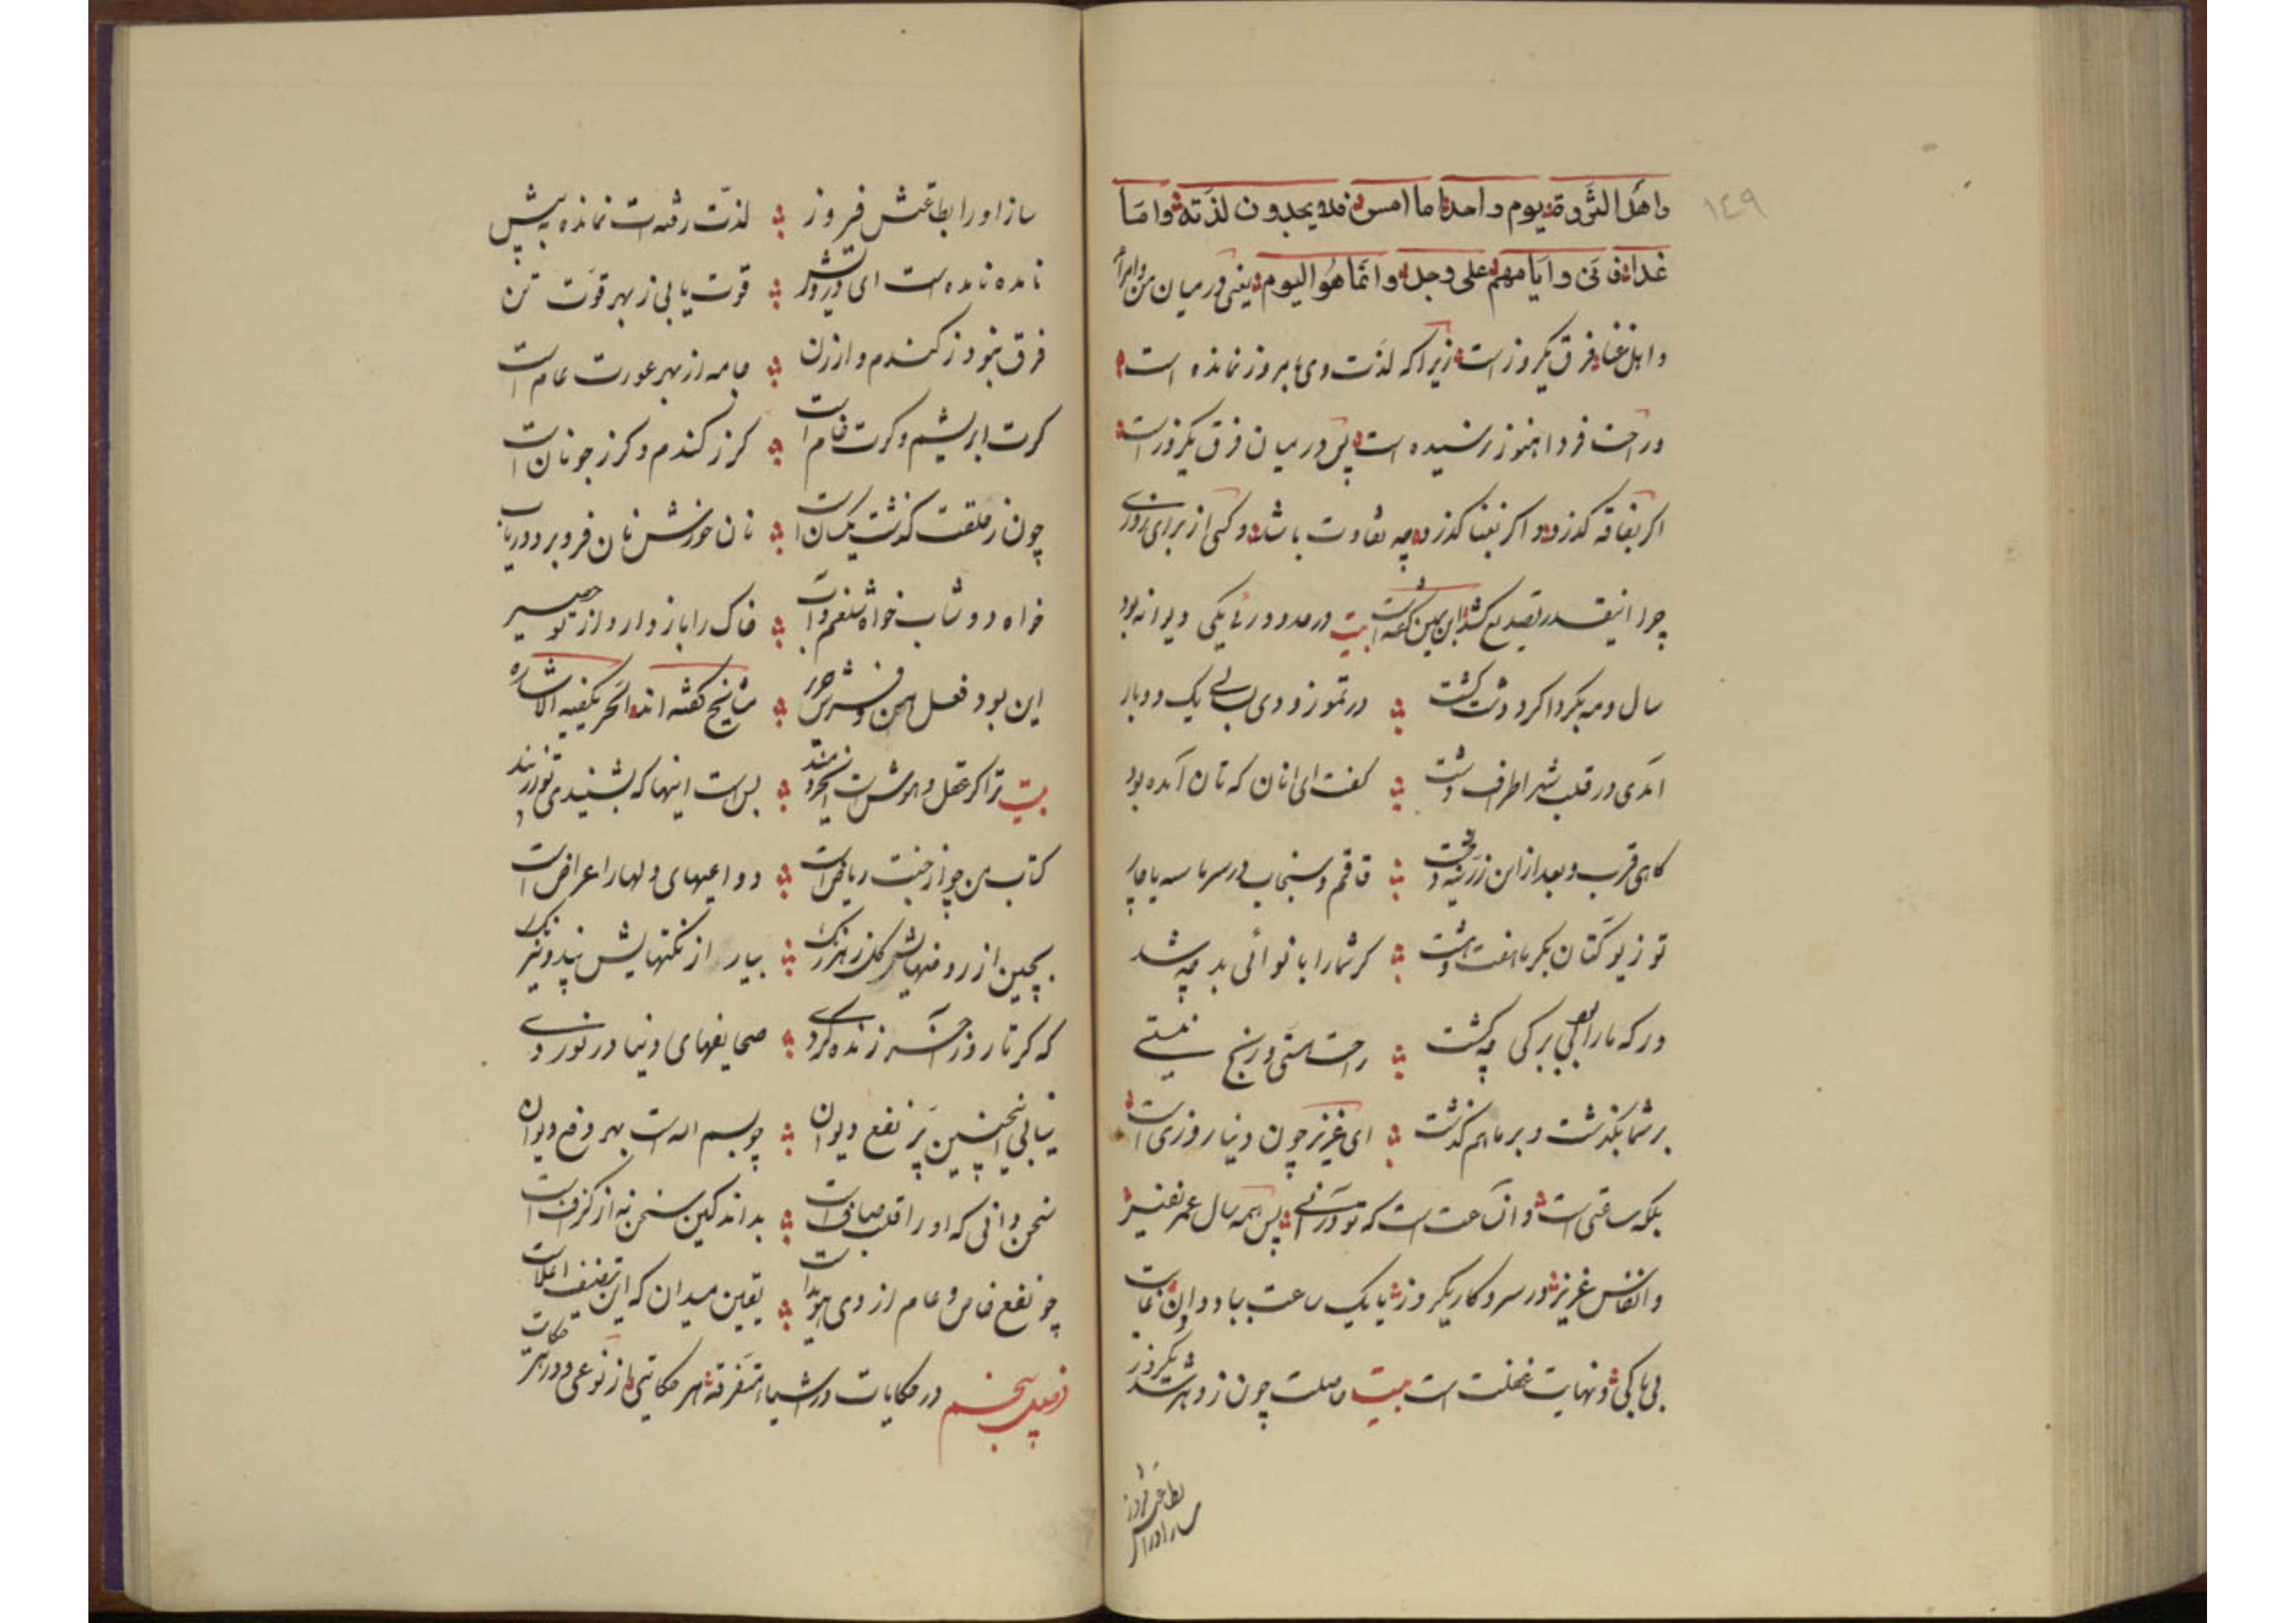 ١٤٩
واهل الثروة يوم واحد اما امس فلا يجدون لذته واما
غدا فانی وایامهم علی وجل وانما هو الیوم یعنی در میان من و امرا
و اهل غنا فرق یکروز است زیرا که لذت دی بامروز نمانده است
و راحت فردا هنوز نرسیده است پس در میان فرق یکروز است
اگر بفاقه گذرد و اگر بغنا گذرد چه تفاوت باشد و کسی از برای روزی
چرا اینقدر تصدیع کشد ابن یمین گفته است بیت در حدود ری یکی دیوانه بود
سال و مه بکردا کرد دشت گشت در تموز و دی بسالی یک دو بار
آمدی در قلب شهر اطراف دشت گفت ای انان که تان آمده بود
گاهی قرب و بعد از این زرینه قاقم و سنجاب در سرما سه یا چار
توزی و کتان بگرما هفت هشت گر شما را با نوائی بد چه شد
ور که ما را بی برگی چه گشت راحت هستی و رنج نیستی
بر شما بگذشت و بر ما هم گذشت ای عزیز چون دنیا روزی است
بلکه ساعتی است و آن ساعت است که تو در آنی پس همه سال عمر نفیس
و انفاس عزیز در سر و کار یکروز یا یک ساعت بباد دادن غایت
بی باکی و نهایت غفلت است بیت حاصلت چون ز دهر شد یکروز
ساز او را بطاعتش فیروز لذت رفته است نمانده به پیش
نامده نامده است ای درویش قوت یابی ز بهر قوت تن
فرق نبود ز گندم و ارزن جامه از بهر عورت عام است
گرت ابریشم و گرت خام است گر ز گندم و گر ز جو نان است
چون ز حلقت گذشت یکسان است نان خورش نان فرو برد دریاب
خواه دوشاب خواه شلغم و آب خاک را باز دارد از تو حصیر
این بود فعل پهن و فرش حریر مشایخ گفته اند الحر یکفیه الاشاره
بیت ترا گر عقل و هوش است ای خردمند بس است اینها که بشنیدی تو در پند
کتاب من چو از جنت ریاض است دواعیهای دلها را اعراض است
بچین از روضهایش گل ز هر رنگ بیار از نکتهایش پند و نیرنگ
که گر تا روز حشر زنده گردی صحایفهای دنیا در نوردی
نیابی اینچنین پر نفع دیوان چو بسم الله است بهر دفع دیوان
سخن دانی که او را قلب صاف است بداند کین سخن نه از گزاف است
چو نفع خاص و عام از وی هویداست یقین میدان که این تصنیف اعلاست
فصل پنجم در حکایات در اشیاء متفرقه هر حکایتی از نوعی و در هر حکایت
ساز او را
بطاعتش فیروز